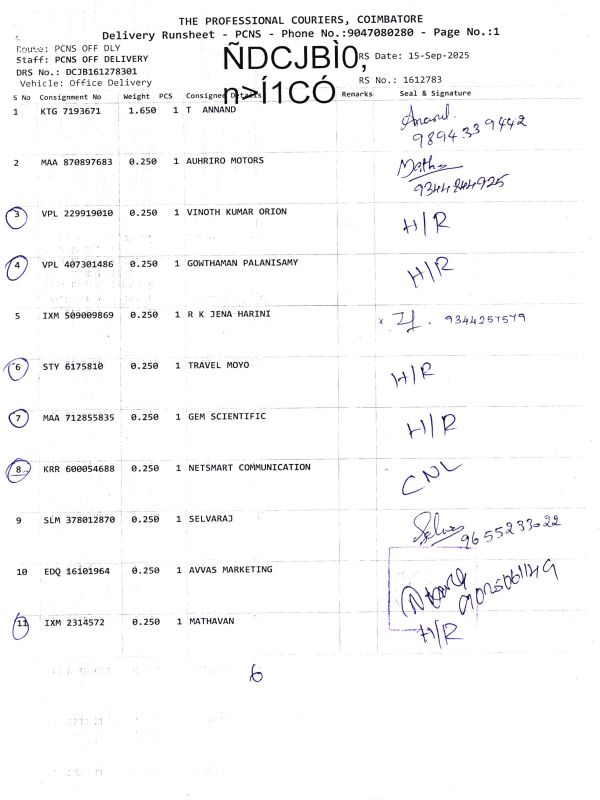 THE PROFESSIONAL COURIERS, COIMBATORE
Delivery Runsheet - PCNS - Phone No.:9047080280 - Page No.:1
Route: PCNS OFF DLY
Staff: PCNS OFF DELIVERY
ÑDCJBÌ0,
RS Date: 15-Sep-2025
DRS No.: DCJB161278301
Vehicle: Office Delivery
n>Í1CÓ
RS No.: 1612783
S No Consignment No Weight PCS Consignee Details Remarks Seal & Signature
1 KTG 7193671 1.650 1 T ANNAND Anand.
9894339442
2 MAA 870897683 0.250 1 AUHRIRO MOTORS
9344244925
3 VPL 229919010 0.250 1 VINOTH KUMAR ORION H/R
4 VPL 407301486 0.250 1 GOWTHAMAN PALANISAMY H/R
5 IXM 509009869 0.250 1 R K JENA HARINI 9344257579
6 STY 6175810 0.250 1 TRAVEL MOYO H/R
7 MAA 712855835 0.250 1 GEM SCIENTIFIC H/R
8 KRR 600054688 0.250 1 NETSMART COMMUNICATION CNL
9 SLM 378012870 0.250 1 SELVARAJ 9655233022
10 EDQ 16101964 0.250 1 AVVAS MARKETING
11 IXM 2314572 0.250 1 MATHAVAN H/R
6